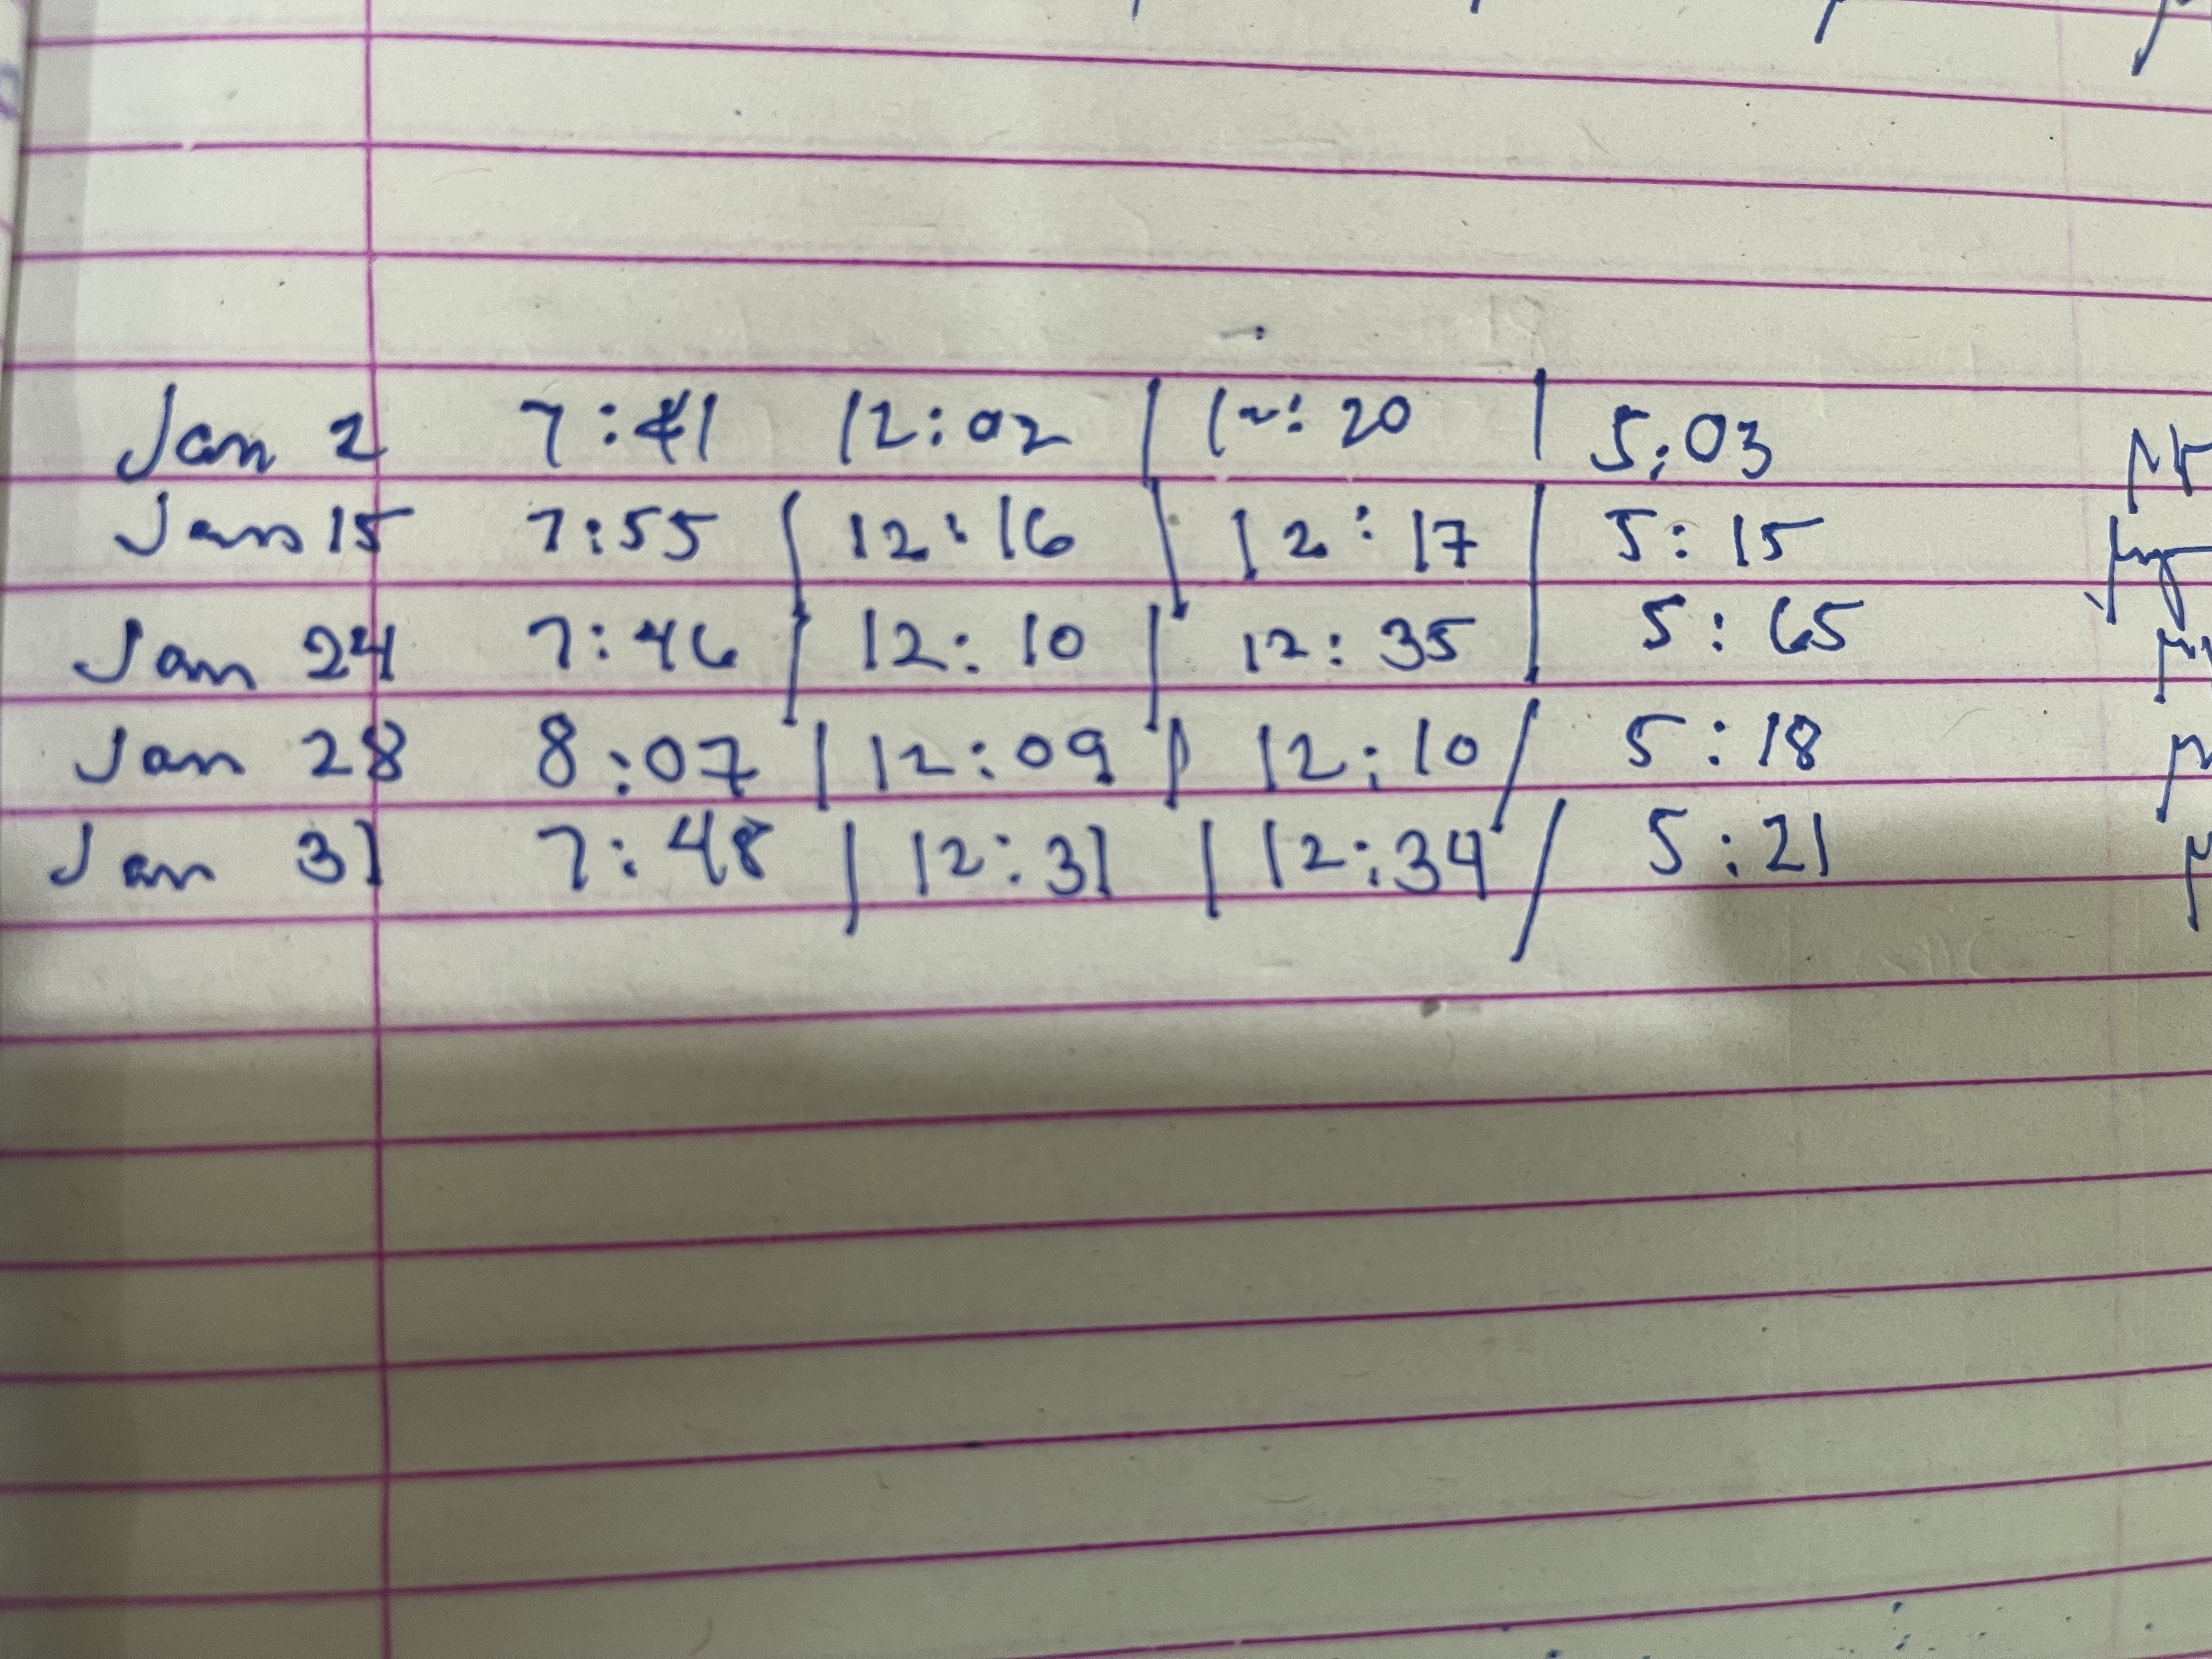 Jan 2 7:41 12:02 | 12:20 | 5:03
Jan 15 7:55 | 12:16 | 12:17 | 5:15
Jan 24 7:46 | 12:10 | 12:35 | 5:65
Jan 28 8:07 | 12:09 | 12:10 / 5:18
Jan 31 7:48 | 12:31 | 12:34 / 5:21